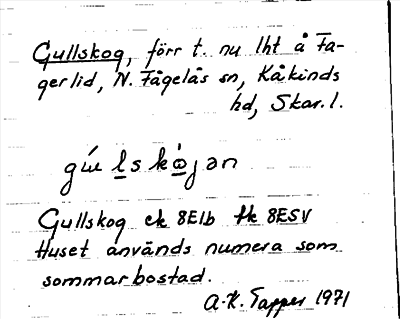 Gullskog, förr t. nu lht å Fa-
gerlid, N. Fågelås sn, Kåkinds
hd, Skar. l.
Gullskog ek 8E1b fk 8E5V
Huset används numera som
sommarbostad.
A.K. Tapper 1971